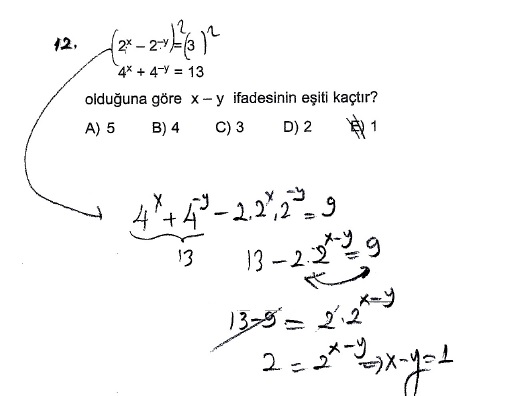 12. (2ˣ – 2⁻ʸ)² = (3)²
4ˣ + 4⁻ʸ = 13
olduğuna göre x – y ifadesinin eşiti kaçtır?
A) 5 B) 4 C) 3 D) 2 E) 1
4ˣ + 4⁻ʸ – 2.2ˣ.2⁻ʸ = 9
13 13 – 2.2ˣ⁻ʸ = 9
13–9 = 2.2ˣ⁻ʸ
2 = 2ˣ⁻ʸ ⇒ x–y=1